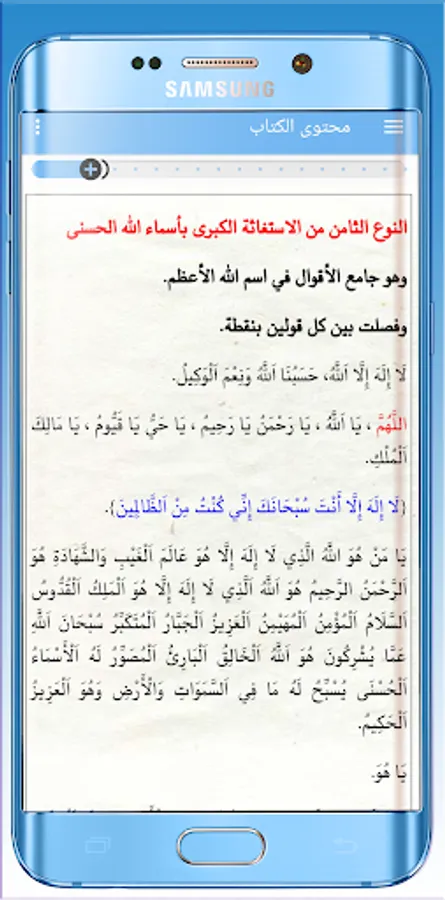 SAMSUNG
محتوى الكتاب
النوع الثامن من الاستغاثة الكبرى بأسماء الله الحسنى
وهو جامع الأقوال في اسم الله الأعظم.
وفصلت بين كل قولين بنقطة.
لَا إِلَهَ إِلَّا اَللَّهُ، حَسْبُنَا اَللَّهُ وَنِعْمَ اَلْوَكِيلُ.
اَللَّهُمَّ ، يَا اَللَّهُ ، يَا رَحْمَنُ يَا رَحِيمُ ، يَا حَيُّ يَا قَيُّومُ ، يَا مَالِكَ
اَلْمُلْكِ.
(لَا إِلَهَ إِلَّا أَنْتَ سُبْحَانَكَ إِنِّي كُنْتُ مِنْ اَلظَّالِمِينَ).
يَا مَنْ هُوَ اَللَّهُ الَّذِي لَا إِلَهَ إِلَّا هُوَ عَالَمَ اَلْغَيْبِ وَالشَّهَادَةِ هُوَ
اَلرَّحْمَنُ الرَّحِيمُ هُوَ اَللَّهُ اَلَّذِي لَا إِلَهَ إِلَّا هُوَ اَلْمَلِكُ اَلْقُدُّوسُ
اَلسَّلَامُ اَلْمُؤْمِنُ اَلْمُهَيْمِنُ اَلْعَزِيزُ اَلْجَبَّارُ اَلْمُتَكَبِّرُ سُبْحَانَ اَللَّهِ
عَمَّا يُشْرِكُونَ هُوَ اَللَّهُ اَلْخَالِقُ اَلْبَارِئُ اَلْمُصَوِّرُ لَهُ اَلْأَسْمَاءُ
اَلْحُسْنَى يُسَبِّحُ لَهُ مَا فِي اَلسَّمَوَاتِ وَالْأَرْضِ وَهُوَ اَلْعَزِيزُ
اَلْحَكِيمُ.
يَا هُوَ.